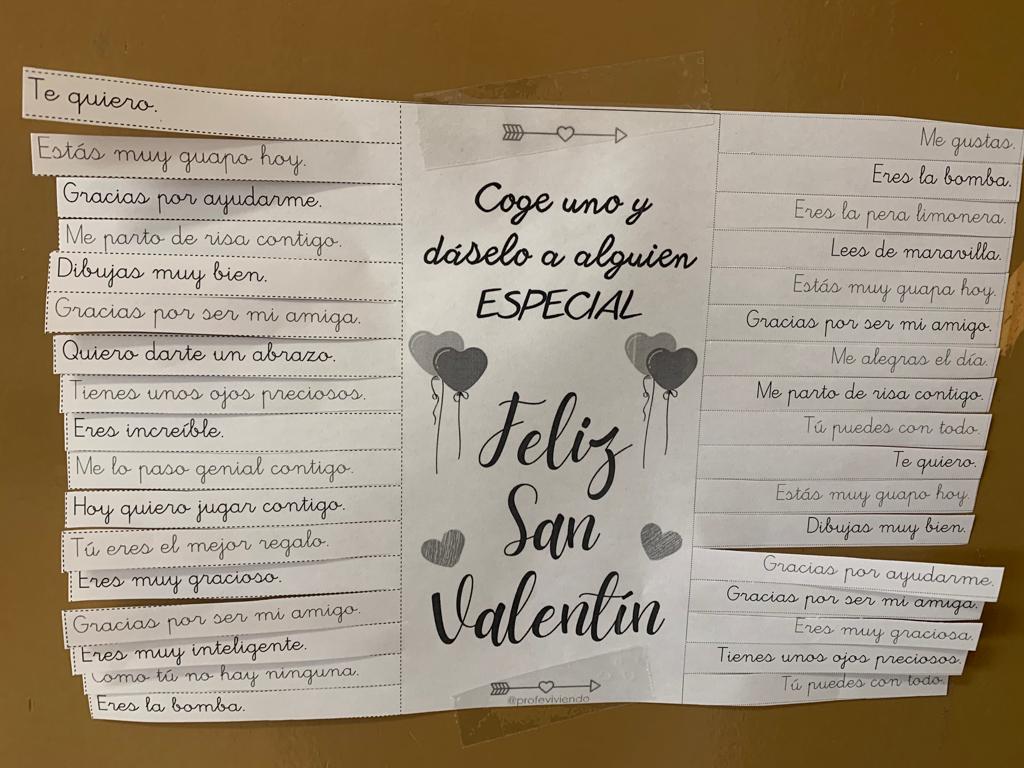 Te quiero.
Estás muy guapo hoy.
Gracias por ayudarme.
Me parto de risa contigo.
Dibujas muy bien.
Gracias por ser mi amiga.
Quiero darte un abrazo.
Tienes unos ojos preciosos.
Eres increíble.
Me lo paso genial contigo.
Hoy quiero jugar contigo.
Tú eres el mejor regalo.
Eres muy gracioso.
Gracias por ser mi amigo.
Eres muy inteligente.
Como tú no hay ninguna.
Eres la bomba.
Coge uno y
dáselo a alguien
ESPECIAL
Feliz
San
Valentín
@profeviviendo
Me gustas.
Eres la bomba.
Eres la pera limonera.
Lees de maravilla.
Estás muy guapa hoy.
Gracias por ser mi amigo.
Me alegras el día.
Me parto de risa contigo.
Tú puedes con todo.
Te quiero.
Estás muy guapo hoy.
Dibujas muy bien.
Gracias por ayudarme.
Gracias por ser mi amiga.
Eres muy graciosa.
Tienes unos ojos preciosos.
Tú puedes con todo.